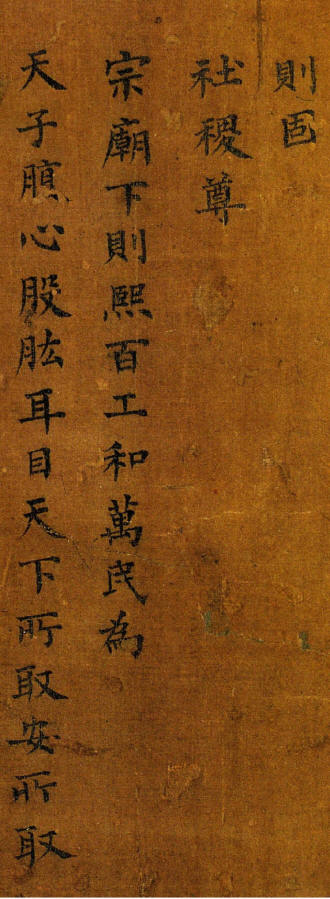 則固
社稷尊
宗廟下則熙百工和萬民為
天子腹心股肱耳目天下所取安所取